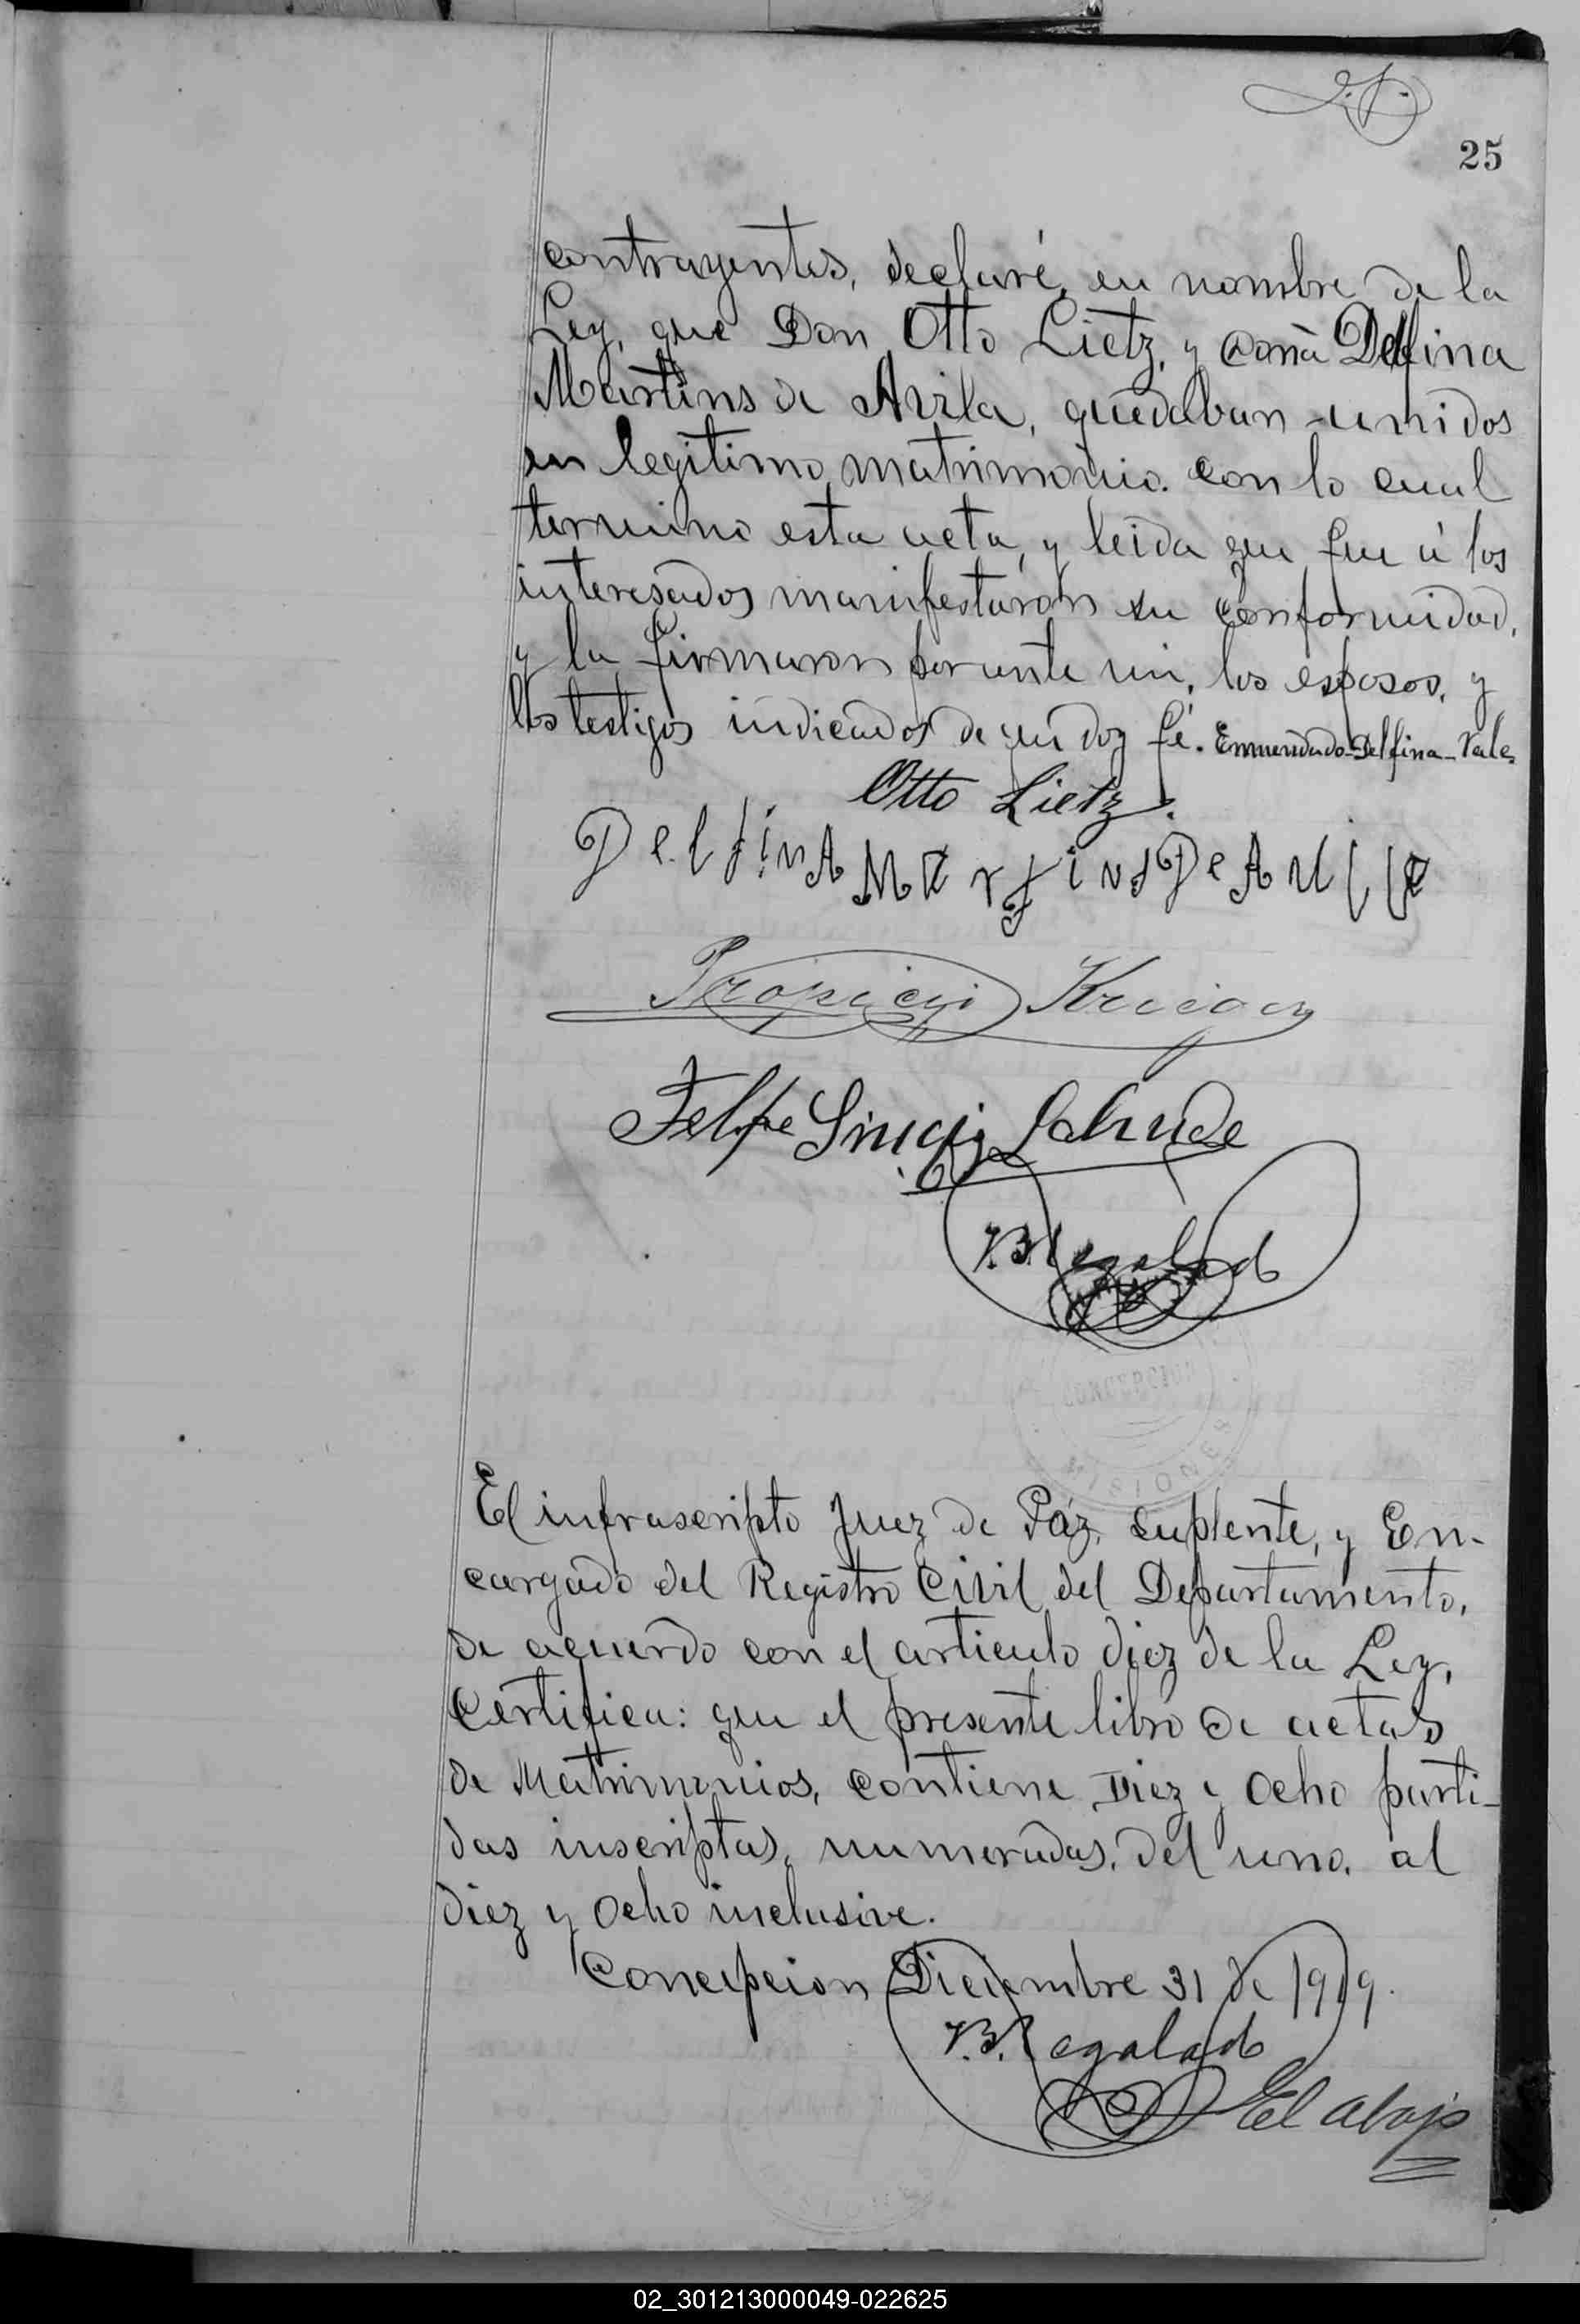 25
contrayentes, declaré, en nombre de la
Ley, que Don Otto Lietz, y Doña Delfina
Martins de Avila, quedaban unidos
en legitimo matrimonio. con lo cual
termino esta acta, y leida que fue á los
interesados manifestáron su conformidad,
y la firmaron por ante mi, los esposos, y
los testigos indicados de que doy fé. Enmendado-Delfina-Vale
Otto Lietz.
DelfinA MArtins De Avila
Krieger
Felipe Lahude
Regalado
CONCEPCION
MISIONES
El infrascripto Juez de Páz, Suplente, y En-
cargado del Registro Civil del Departamento,
de acuerdo con el articulo diez de la Ley,
Certifica: que el presente libro de actas
de Matrimonios, contiene Diez y Ocho parti-
das inscriptas, numeradas, del uno, al
diez y Ocho inclusive.
Concepcion Diciembre 31 de 1919.
Regalado
02_301213000049-022625